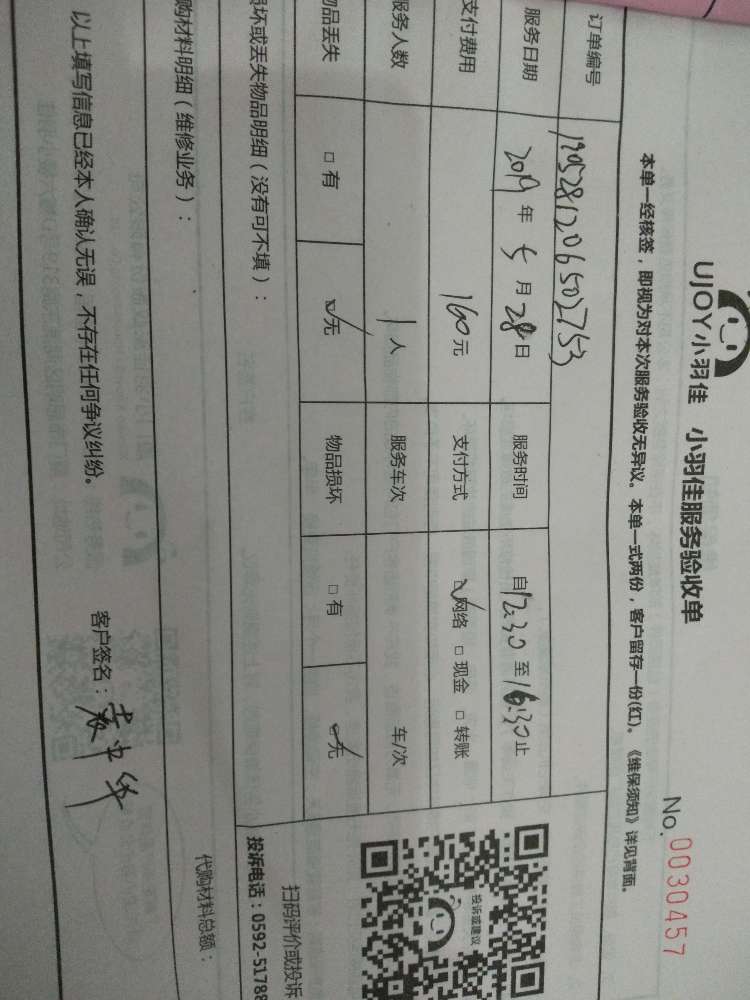 UJOY小羽佳 小羽佳服务验收单
No.0030457
本单一经核签，即视为对本次服务验收无异议。本单一式两份，客户留存一份(红)。《维保须知》详见背面。
订单编号 1905281206502753
服务日期 2019年5月28日 服务时间 自12:30至16:30止
支付费用 160元 支付方式 ☑网络 □现金 □转账
服务人数 1人 服务车次 车/次
物品丢失 □有 ☑无 物品损坏 □有 ☑无
坏或丢失物品明细（没有可不填）：
投诉或建议
扫码评价或投诉
投诉电话：0592-51788
购材料明细（维修业务）：
代购材料总额：
以上填写信息已经本人确认无误，不存在任何争议纠纷。
客户签名：